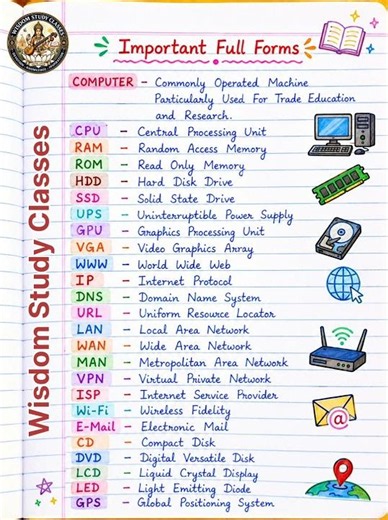 WISDOM STUDY CLASSES
Important Full Forms
COMPUTER – Commonly Operated Machine
Particularly Used For Trade Education
and Research.
CPU – Central Processing Unit
RAM – Random Access Memory
ROM – Read Only Memory
HDD – Hard Disk Drive
SSD – Solid State Drive
UPS – Uninterruptible Power Supply
GPU – Graphics Processing Unit
VGA – Video Graphics Array
WWW – World Wide Web
IP – Internet Protocol
DNS – Domain Name System
URL – Uniform Resource Locator
LAN – Local Area Network
WAN – Wide Area Network
MAN – Metropolitan Area Network
VPN – Virtual Private Network
ISP – Internet Service Provider
Wi-Fi – Wireless Fidelity
E-Mail – Electronic Mail
CD – Compact Disk
DVD – Digital Versatile Disk
LCD – Liquid Crystal Display
LED – Light Emitting Diode
GPS – Global Positioning System
Wisdom Study Classes
@